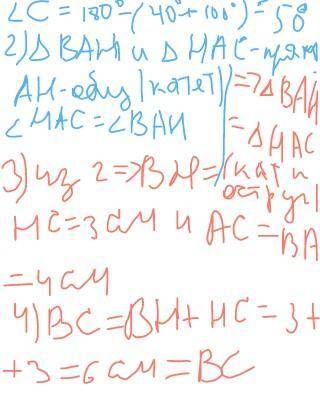 ∠C = 180° - (40° + 100°) = 50°
2) Δ BAH и Δ HAC - прям
AH - общ (катет)
∠HAC = ∠BAH
=> Δ BAH
= Δ HAC
(кат и
остр уг)
3) из 2 => BH =
HC = 3 см и AC = BA
= 4 см
4) BC = BH + HC = 3 +
+ 3 = 6 см = BC